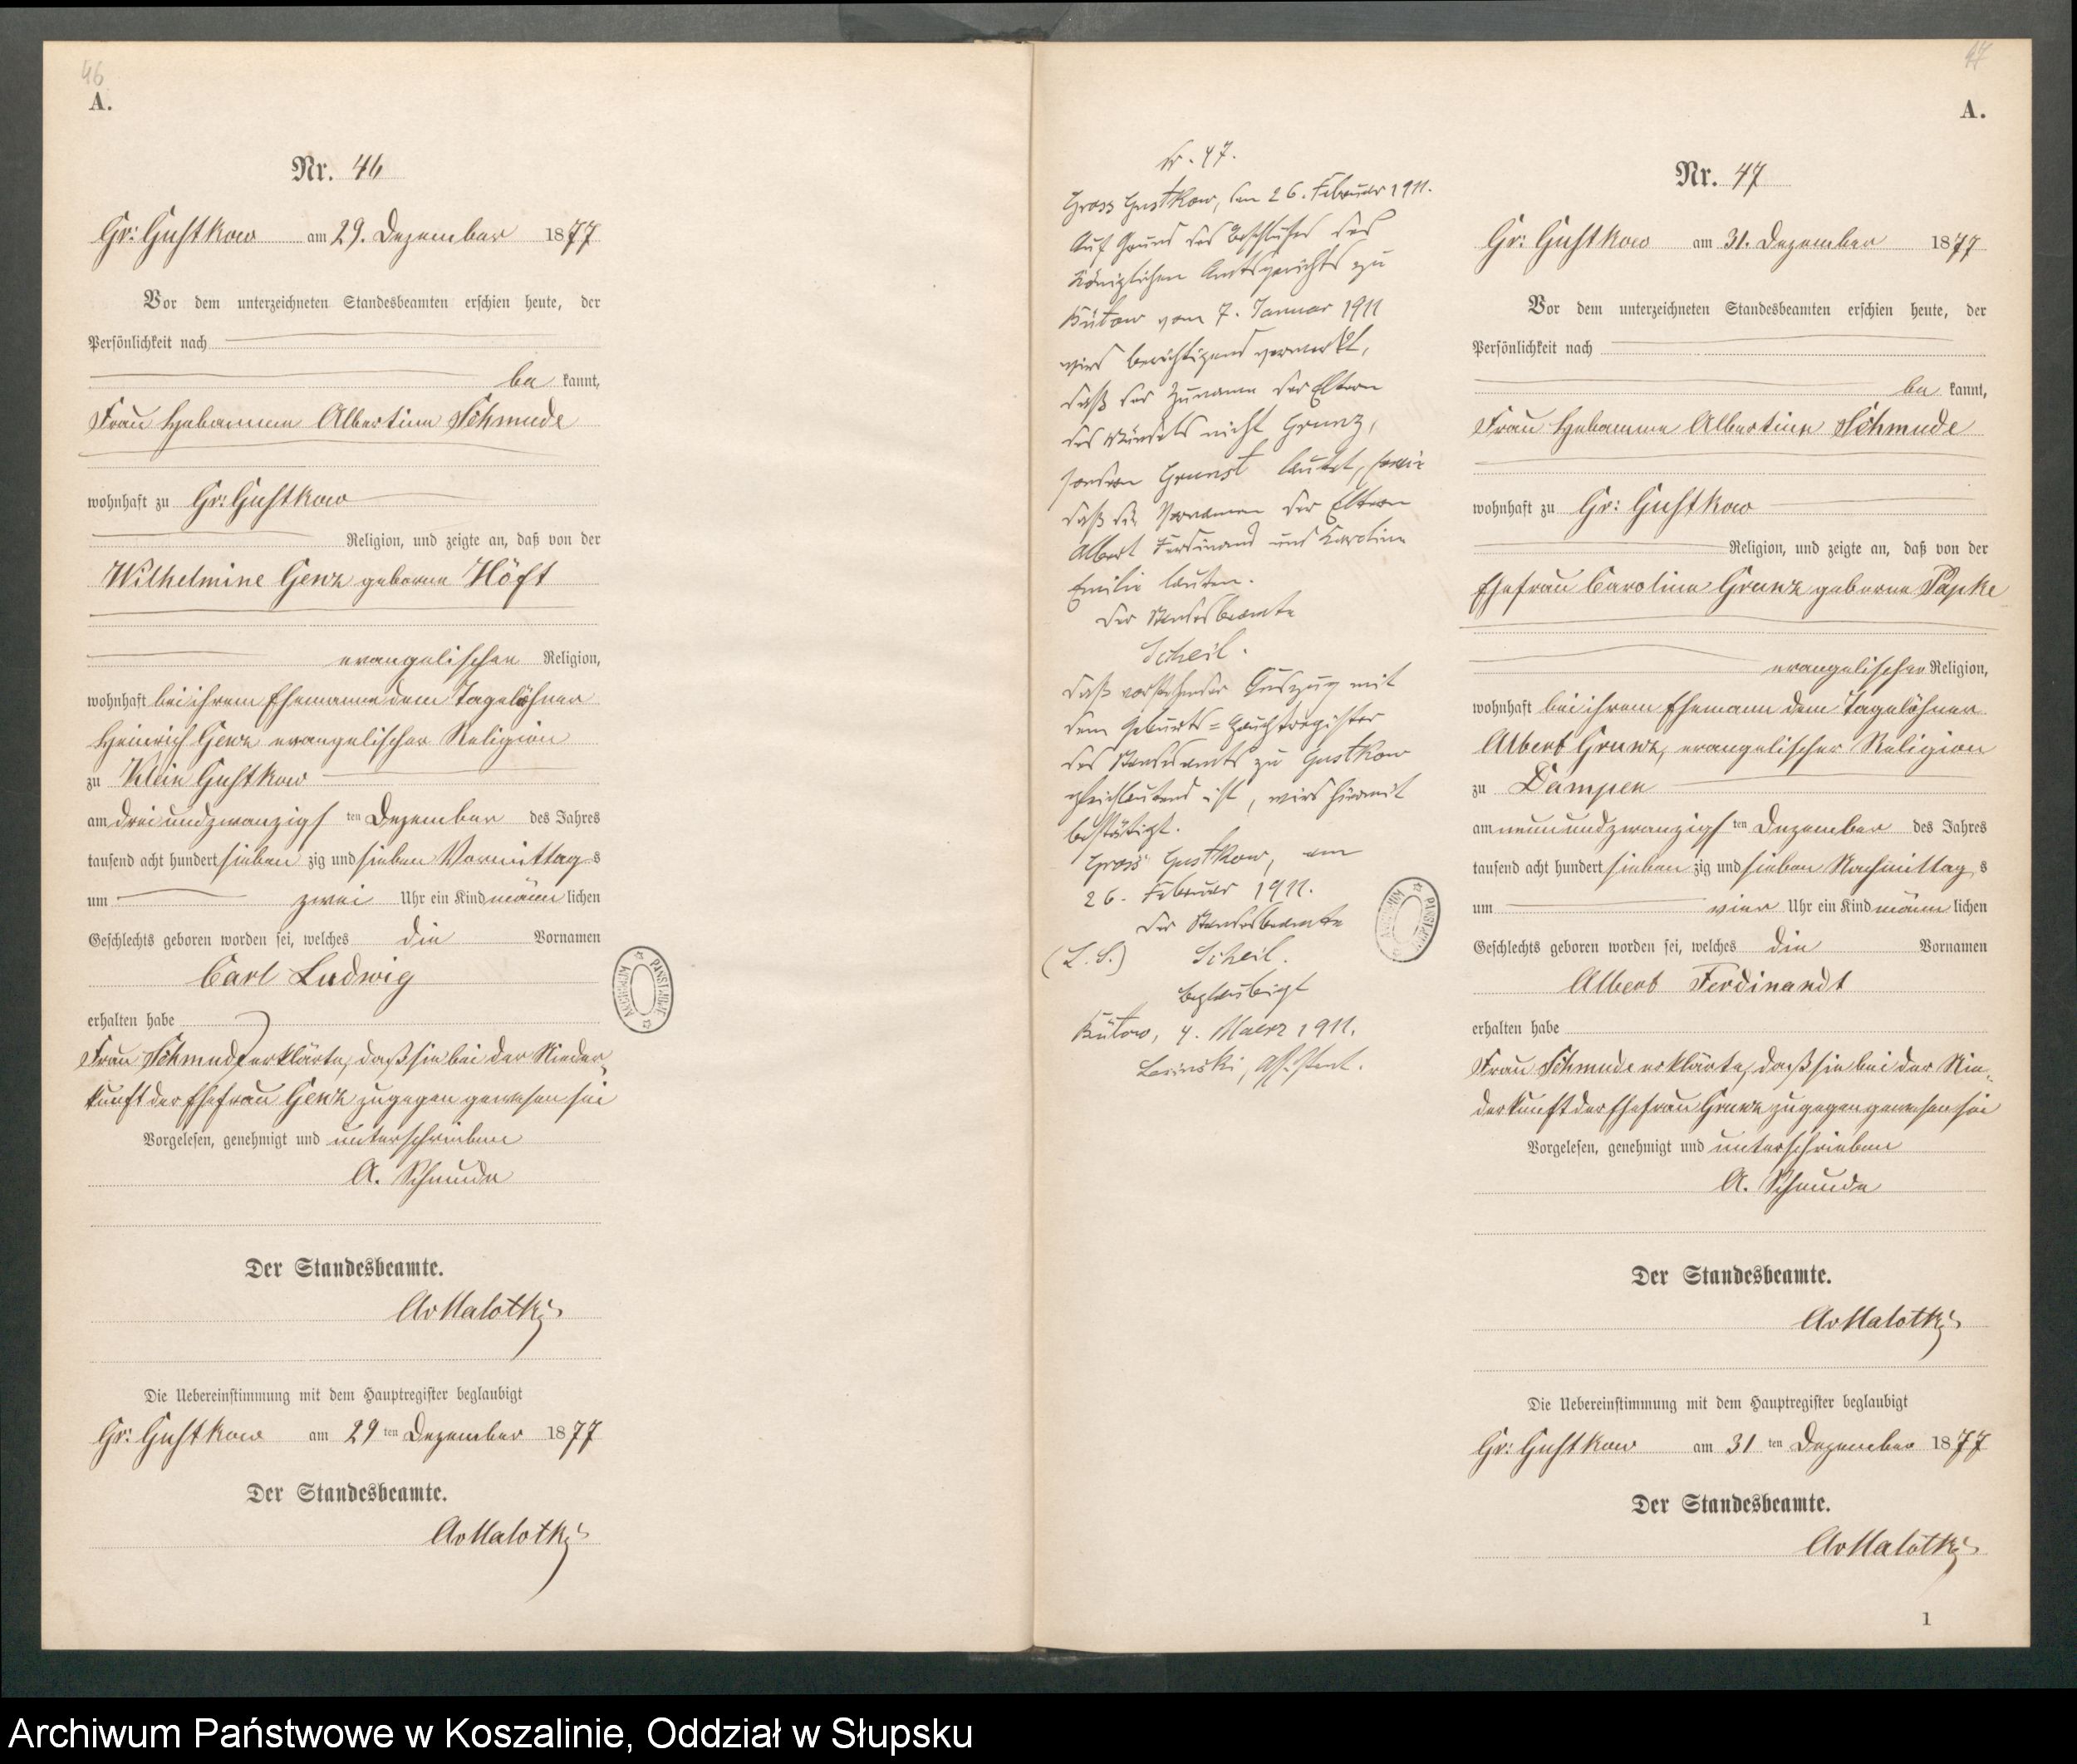 46
A.
Nr. 46
Gr: Gustkow am 29. Dezember 1877
Vor dem unterzeichneten Standesbeamten erschien heute, der
Persönlichkeit nach
be kannt,
Frau Hebamme Albertine Schmude
wohnhaft zu Gr: Gustkow
Religion, und zeigte an, daß von der
Wilhelmine Genz geborne Höft
evangelischer Religion,
wohnhaft bei ihrem Ehemanne dem Tagelöhner
Heinrich Genz evangelischer Religion
zu Klein Gustkow
am drei und zwanzigs ten Dezember des Jahres
tausend acht hundert sieben zig und sieben Vormittag s
um zwei Uhr ein Kind männ lichen
Geschlechts geboren worden sei, welches die Vornamen
Carl Ludwig
erhalten habe
Frau Schmude erklärte, daß sie bei der Nieder-
kunft der Ehefrau Genz zugegen gewesen sei
Vorgelesen, genehmigt und unterschrieben
A. Schmude
Der Standesbeamte.
AvMalotki
Die Uebereinstimmung mit dem Hauptregister beglaubigt
Gr: Gustkow am 29 ten Dezember 1877
Der Standesbeamte.
AvMalotki
Nr. 47.
Gross Gustkow, den 26. Februar 1911.
Auf Grund des Beschlusses des
Königlichen Amtsgerichts zu
Bütow vom 7. Januar 1911
wird berichtigend vermerkt,
daß der Zuname der Eltern
des Kindes nicht Grunz,
sondern Grunst lautet, sowie
daß die Vornamen der Eltern
Albert Ferdinand und Karoline
Emilie lauten.
Der Standesbeamte
Scheil.
Daß vorstehender Auszug mit
dem Geburts=Hauptregister
des Standesamts zu Gustkow
gleichlautend ist, wird hiermit
bestätigt.
Gross Gustkow, am
26. Februar 1911.
Der Standesbeamte
(L.S.) Scheil.
Beglaubigt
Bütow, 4. Maerz 1911.
Assistent.
47
A.
Nr. 47
Gr: Gustkow am 31. Dezember 1877
Vor dem unterzeichneten Standesbeamten erschien heute, der
Persönlichkeit nach
be kannt,
Frau Hebamme Albertine Schmude
wohnhaft zu Gr: Gustkow
Religion, und zeigte an, daß von der
Ehefrau Caroline Grunz geborne Papke
evangelischer Religion,
wohnhaft bei ihrem Ehemann dem Tagelöhner
Albert Grunz, evangelischer Religion
zu Dampen
am neun und zwanzigs ten Dezember des Jahres
tausend acht hundert sieben zig und sieben Nachmittag s
um vier Uhr ein Kind männ lichen
Geschlechts geboren worden sei, welches die Vornamen
Albert Ferdinandt
erhalten habe
Frau Schmude erklärte, daß sie bei der Nie-
derkunft der Ehefrau Grunz zugegen gewesen sei
Vorgelesen, genehmigt und unterschrieben
A. Schmude
Der Standesbeamte.
AvMalotki
Die Uebereinstimmung mit dem Hauptregister beglaubigt
Gr: Gustkow am 31 ten Dezember 1877
Der Standesbeamte.
AvMalotki
1
Archiwum Państwowe w Koszalinie, Oddział w Słupsku